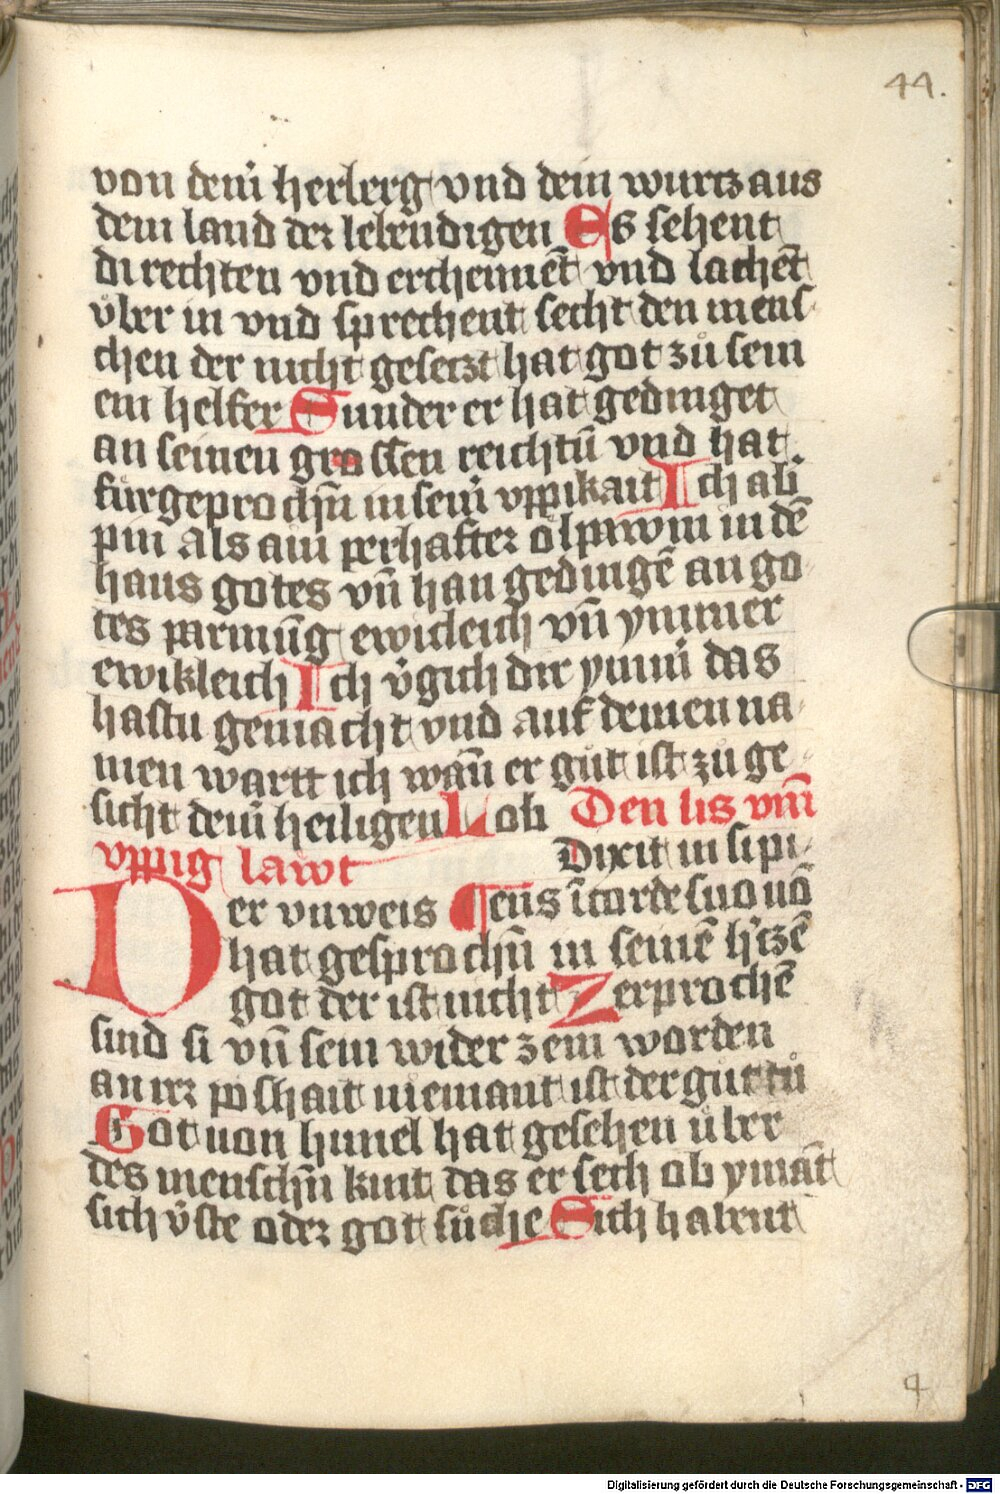 44.
von dem̄ herberg vnd dein wurtz aus
dem land der lebendigen Es sehent
di rechten vnd erchennēt vnd lachēt
v̊ber in vnd sprechent secht den mens-
chen der nicht gesetzt hat got zů sein
em helfer Sunder er hat gedinget
an seinen grossen reichtū vnd hat
fürgeprochn̄ in sein̄ vppikait Ich ab
pin als ain perhafter ölpawm in dē
haus gotes vn̄ han gedingē an go-
tes parmūg ewicleich vn̄ ymmer
ewikleich Ich v̊gich dir ymm̄ das
hastu gemacht vnd auf deinen na-
men wartt ich wān er gůt ist zu ge-
sicht dein̄ heiligen Lob Den lis vm̄
vppig lawt Dixit insipi-
Der vnweis ens ī corde suo nō
hat gesprochn̄ in seinē h'tzē
got der ist nicht Zerprochē
sind si vn̄ sein wider zem worden
an irz poshait niemant ist der gůt tů
Got von himel hat gesehen v̊ber
des menschn̄ kint das er sech ob ymāt
sich v̊ste oder got sůche Sich habent
Digitalisierung gefördert durch die Deutsche Forschungsgemeinschaft - DFG